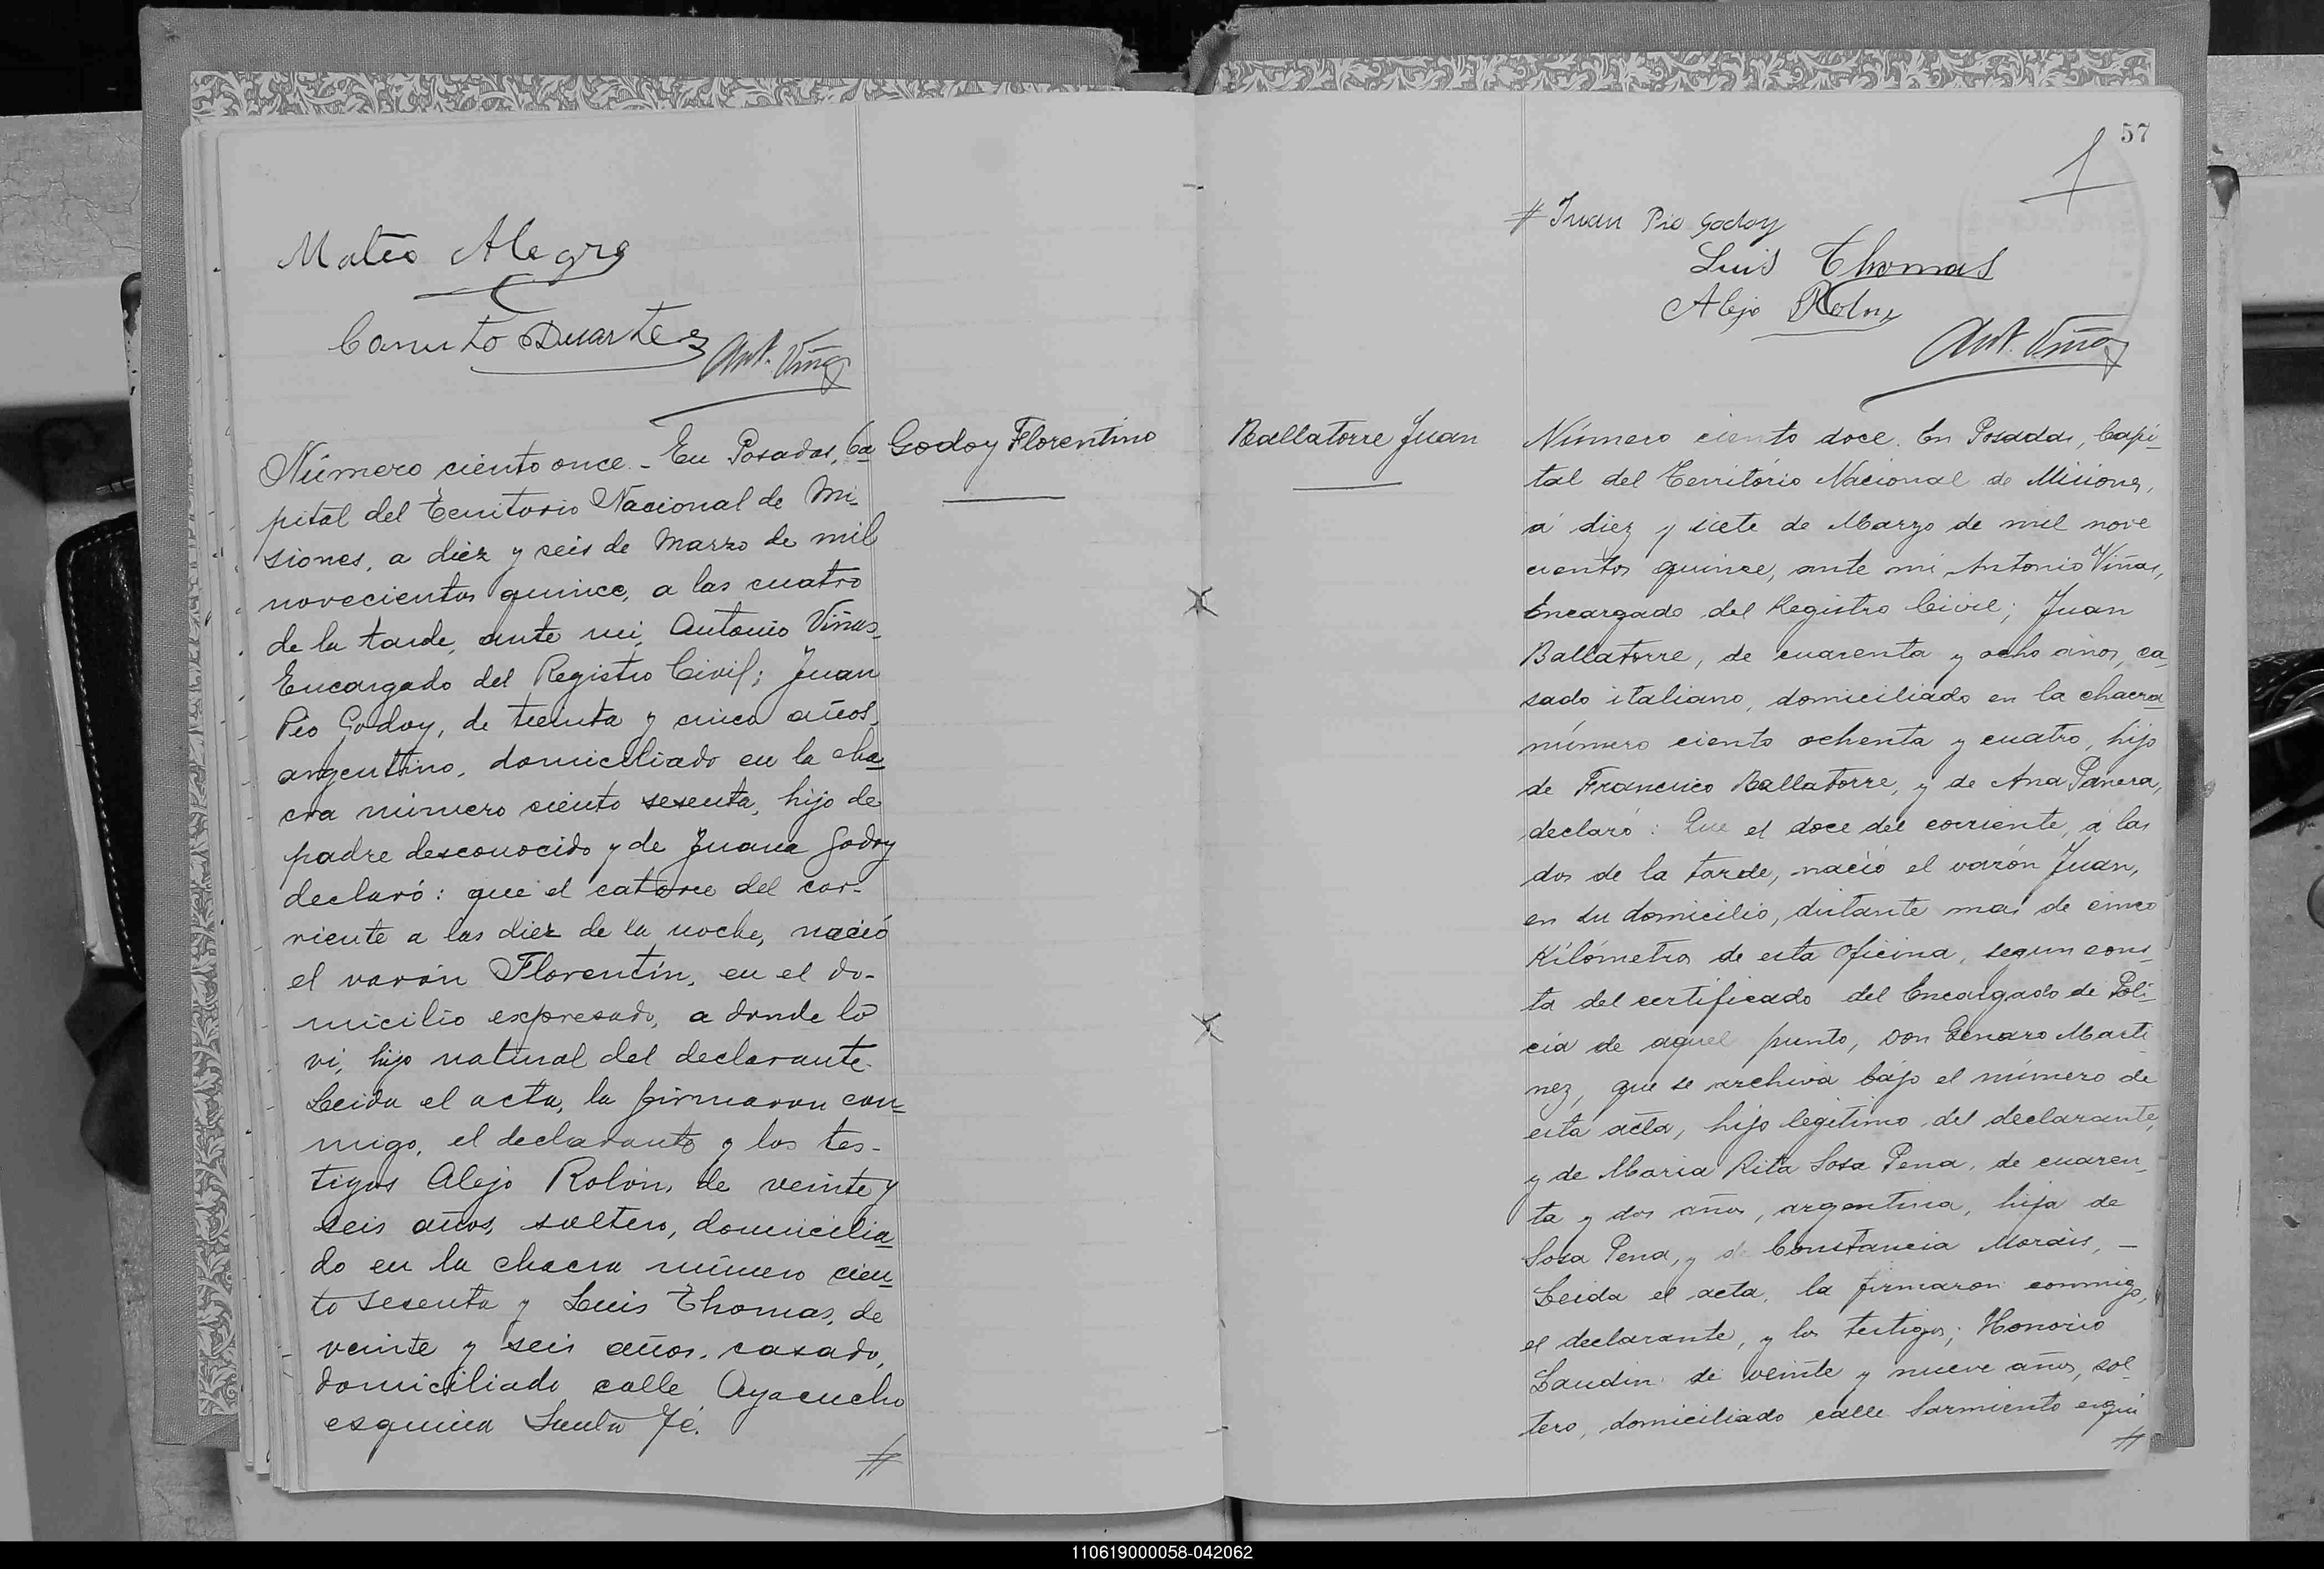 Mateo Alegre
Canuto Duarte
Ant. Viñas
Godoy Florentino
Número ciento once. - En Posadas, Ca
pital del Territorio Nacional de Mi-
siones, a diez y seis de Marzo de mil
novecientos quince, a las cuatro
de la tarde, ante mi, Antonio Viñas,
Encargado del Registro Civil; Juan
Pio Godoy, de treinta y cinco años,
argentino, domiciliado en la cha
cra número ciento sesenta, hijo de
padre desconocido y de Juana Godoy
declaró: que el catorce del cor-
riente a las diez de la noche, nació
el varón Florentín, en el do-
micilio expresado, a donde lo
vi, hijo natural del declarante.
Leida el acta, la firmaron con-
migo, el declarante y los tes-
tigos Alejo Rolón, de veinte y
seis años, soltero, domicilia
do en la chacra número cien
to sesenta y Luis Thomas, de
veinte y seis años, casado,
domiciliado calle Ayacucho
esquina Santa Fé.
#
57
1
# Juan Pio Godoy
Luis Thomas
Alejo Roln
Ant. Viñas
Ballatorre Juan
Número ciento doce. En Posadas, Capi-
tal del Territorio Nacional de Misiones,
á diez y siete de Marzo de mil nove
cientos quince, ante mi, Antonio Viñas,
Encargado del Registro Civil; Juan
Ballatorre, de cuarenta y ocho años, ca
sado italiano, domiciliado en la chacra
número ciento ochenta y cuatro, hijo
de Francisco Ballatorre, y de Ana Panera,
declaró: Que el doce del corriente, á las
dos de la tarde, nació el varón Juan,
en su domicilio, distante mas de cinco
Kilómetros de esta Oficina, segun cons-
ta del certificado del Encargado de Poli-
cia de aquel punto, Don Genaro Marti
nez, que se archiva bajo el número de
esta acta, hijo legitimo del declarante,
y de Maria Rita Sosa Pena, de cuaren-
ta y dos años, argentina, hija de
Sosa Pena, y de Constancia Morais, —
Leida el acta, la firmaron conmigo,
el declarante, y los testigos; Honorio
Landin de veinte y nueve años, sol-
tero, domiciliado calle Sarmiento esqui
#
110619000058-042062